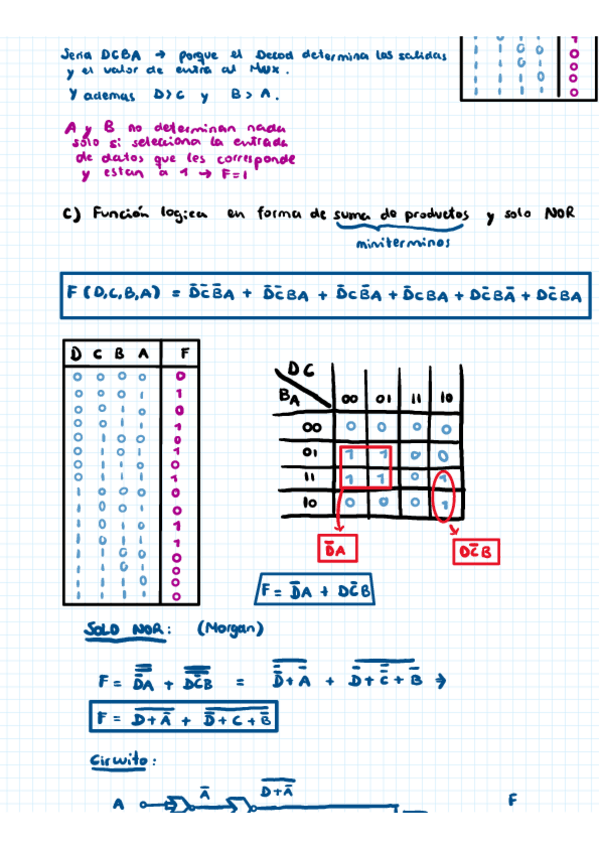 Seria DCBA → porque el Decod determina las salidas
y el valor de entra al Mux.
Y ademas D>C y B>A.
A y B no determinan nada
solo si selecciona la entrada
de datos que les corresponde
y estan a 1 → F=1
C) Función logica en forma de suma de productos y solo NOR
miniterminos
F(D,C,B,A) = D̄C̄B̄A + D̄C̄BA + D̄CB̄A + D̄CBA + DC̄BĀ + DC̄BA
D C B A F
0 0 0 0 0
0 0 0 1 1
0 0 1 0 0
0 0 1 1 1
0 1 0 0 0
0 1 0 1 1
0 1 1 0 0
0 1 1 1 1
1 0 0 0 0
1 0 0 1 0
1 0 1 0 1
1 0 1 1 1
1 1 0 0 0
1 1 0 1 0
1 1 1 0 0
1 1 1 1 0
DC
BA 00 01 11 10
00 0 0 0 0
01 1 1 0 0
11 1 1 0 1
10 0 0 0 1
D̄A DC̄B
F = D̄A + DC̄B
SOLO NOR: (Morgan)
F = D̿̄A̿ + D̿C̿̄B̿ = D̿+Ā + D̄+C̿+B̄ →
F = D+Ā + D̄+C+B̄
Circuito:
A Ā D+Ā F